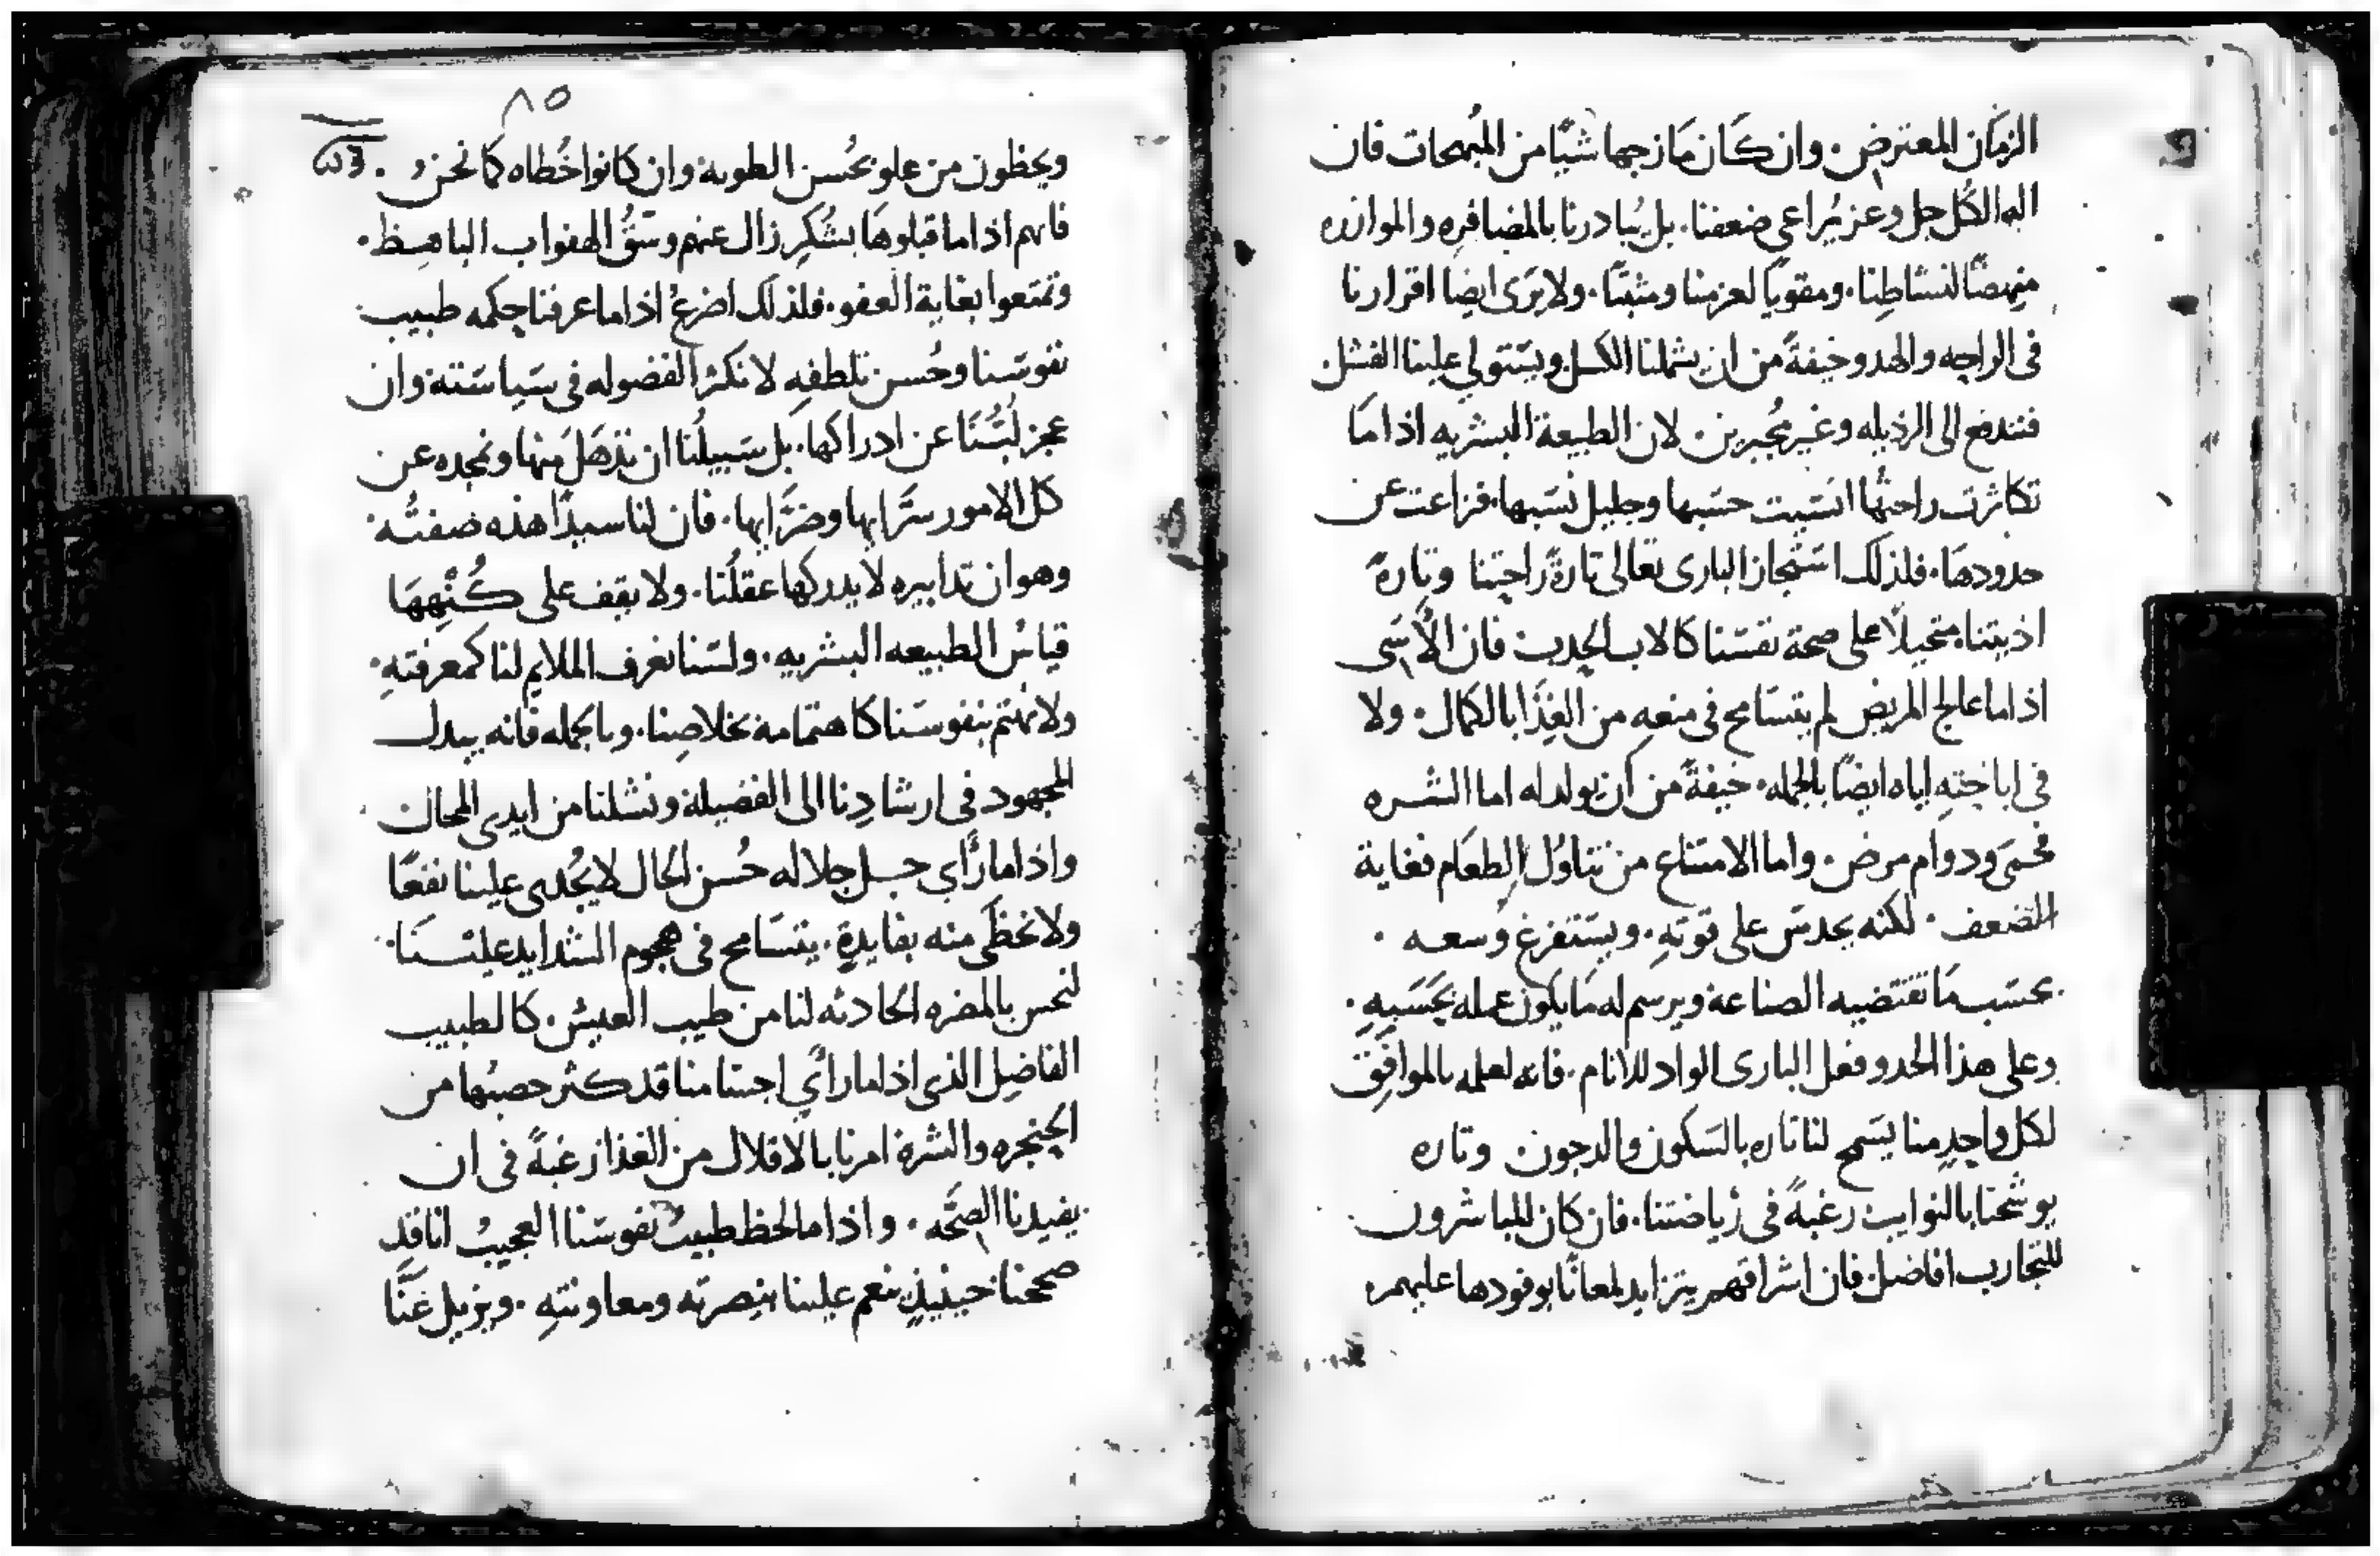 الزمَان المعترض. وان كَان مَازجها شيًا من المبُهجات فان
اله الكُل جل وعز يُراعي ضعفنا. بل يُبادرنا بالمضافرِه والموازره
منهضًا لنشاطِنا. ومقويًا لعزمنا ومثبتًا. ولا يَرَى ايضا اقرارنا
فى الراحه والهدو خيفةً من ان يشملنا الكسل ويستولي علينا الفشل
فنندفع الى الرذيله وغير مُجبرين. لان الطبيعة البشريه اذا مَا
تكاثرت راحتُها انسَيت حسَبها وجليل نسَبها. فزاعت عن
حدودهَا. فلذلك استجاز البارى تعالى تارةً راحتِنا وتارةً
اذيتنا. متحيلًا على صحة نفسَنا كالاب الحدب فان الاسَى
اذا ما عالج المريض لم يتسَامح فى منعه من الغِذَا بالكمال. ولا
فى اباحتهِ اياه ايضًا بالجمله. خيفةً من ان يولد له اما الشره
فحمىَ ودوام مرض. واما الامتناع من تناوُل الطعَام فغاية
الضعف. لكنه يحدسَ على قوتهِ. ويسَتفرغ وُسعه.
بحسَب مَا تقتضيه الصناعة ويرسم له مَا يكون عمله بحَسَبِهِ.
وعلى هذا الحدو فعل البارى الواد للانام. فانه لعلمه بالموافِق
لكل واحِدٍ منا يسَمح لنا تاره بالسَكون والدجون وتاره
يوشحنا بالنوايب رغبةً فى رُياضتنا. فان كان المباشرون
للتجارب افاضل. فان اشراقهم يتزايد لمعانًا بوفودها عليهم
٨٥
ويحظون من علو بحُسن الطوبه. وان كانوا خُطاه كما نحنُ.
فانهم اذا ما قبلوهَا بشُكرٍ زال عنهم وسَقُ الهفوات الباهظ.
وتمتعوا بغاية العفو. فلذلك اضرعُ اذا ما عرفنا حِكمه طبيب
نفوسَنا وحُسن تلطفهِ لا نكثرْ الفضوله فى سَياسَته. وان
عجز لُبّنَا عن ادراكها. بل سَبيلُنا ان نذهَل منها ونمجده عن
كل الامور سَرَّايها وضَرَّايها. فان لنا سيدًا هذه صفتُه.
وهو ان تدابيره لا يدركها عقلُنا. ولا يقف على كُنْهِهَا
قياسُ الطبيعه البشريه. ولسَنا نعرف الملايم لنا كمعرفتهِ.
ولا نهتم بنفوسَنا كاهتمامه بخلاصِنا. وبالجمله فانه يبدل
المجهود فى ارشادِنا الى الفضيلة ونشلنا من ايدى المحال
واذا ما رأي جل جلاله حُسن الحال لا يُجُدى علينا نفعًا
ولا نحظَى منه بفايدةٍ. يتسَامح فى هجوم الشدايد علينَا.
لنحس بالمضره الحادثه لنا من طيب العيش. كالطبيب
الفاضِل الذى اذا ما رأَي احسَامنا قد كثر خصبُها من
الحنجره والشره امرنا بالاقلال من الغذا رغبةً فى ان
يفيدنا الصحَّه. واذا ما لحظ طبيبُ نفوسَنا العجيبُ اناقدِ
صححنا حينيذٍ ينعم علينا بنِصرته ومعاونتهِ. ويزيل عَنَّا